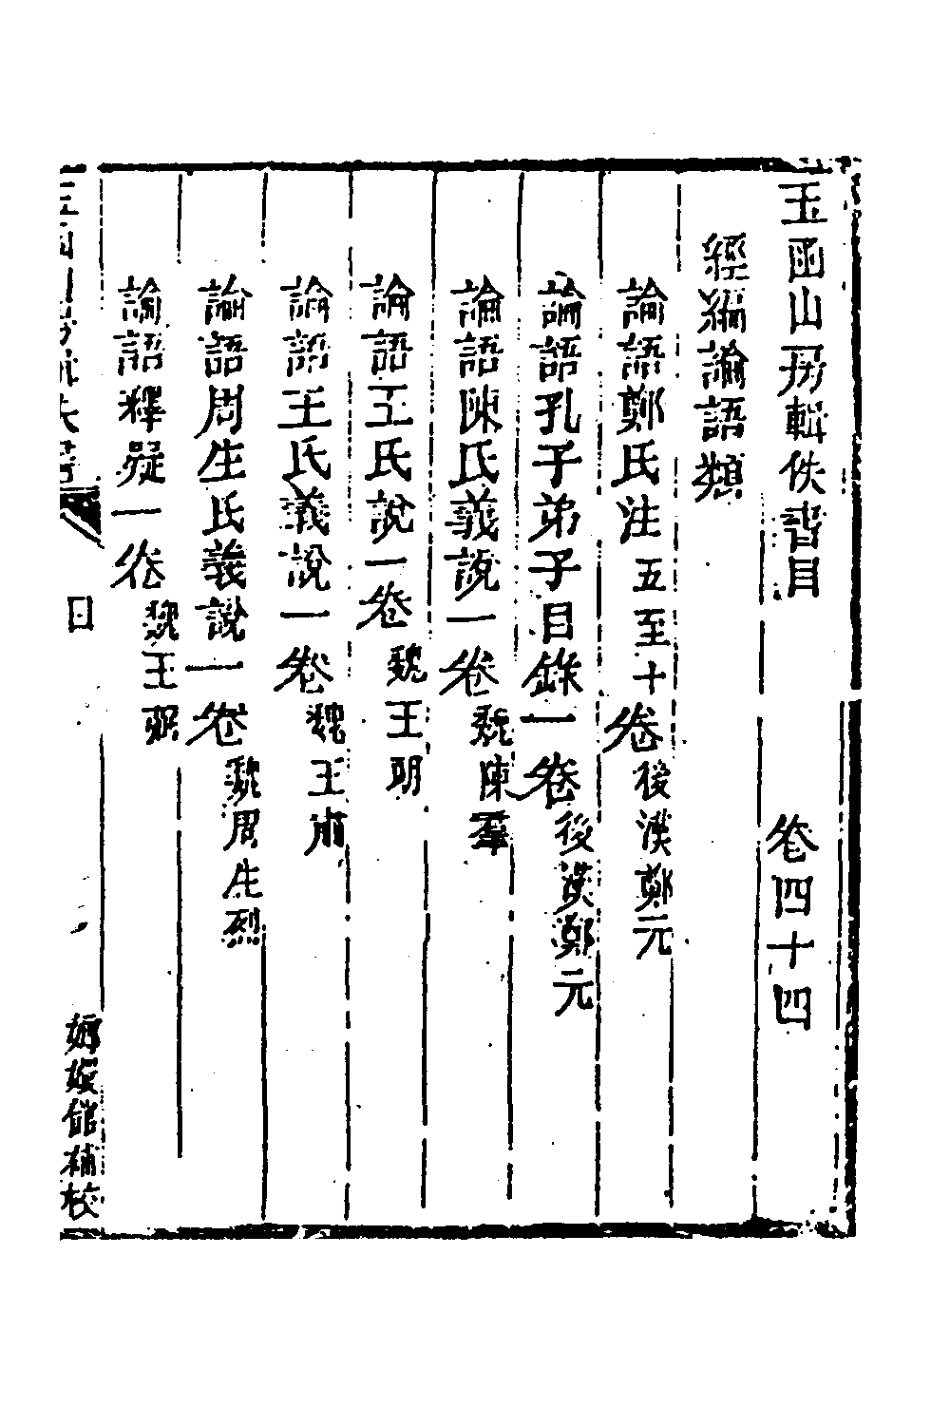 玉函山房輯佚書目　卷四十四
經編論語類
論語鄭氏注五至十卷後漢鄭元
論語孔子弟子目錄一卷後漢鄭元
論語陳氏義說一卷魏陳羣
論語王氏說一卷魏王朗
論語王氏義說一卷魏王肅
論語周生氏義說一卷魏周生烈
論語釋疑一卷魏王弼
目　嫏嬛館補校